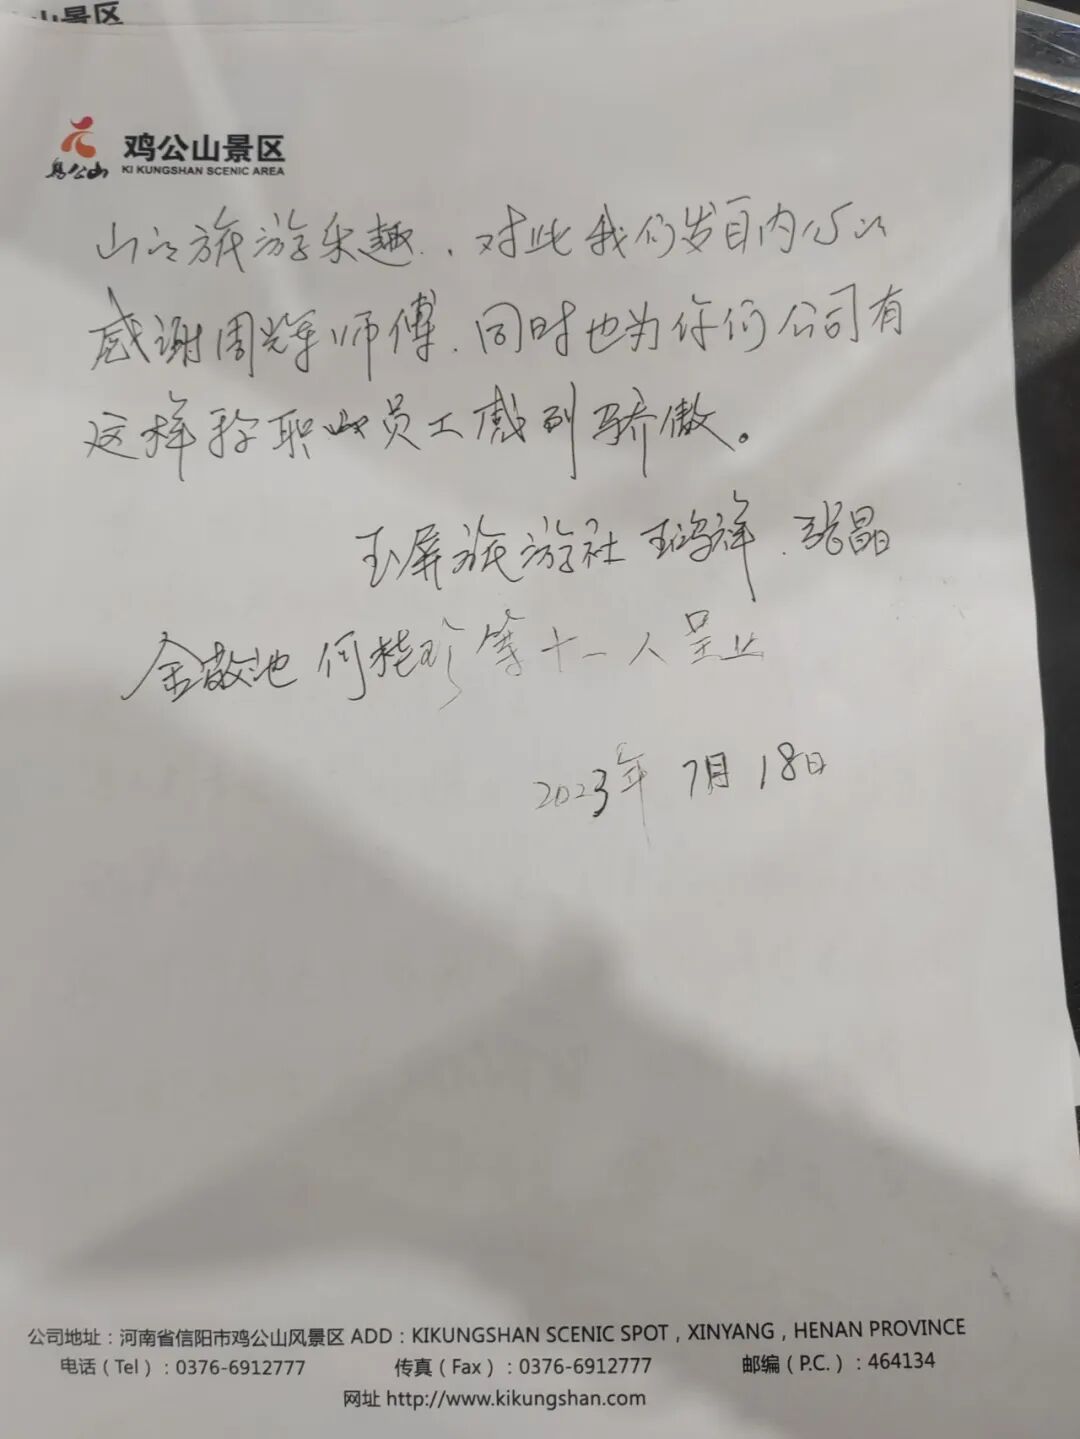 山景区
鸡公山
鸡公山景区
KI KUNGSHAN SCENIC AREA
山之旅游乐趣.，对此我们发自内心以
感谢周辉师傅.同时也为你们公司有
这样称职的员工感到骄傲。
玉屏旅游社 王鸿祥.张晶
余敬池 何桂珍等十一人呈上
2023年 7月 18日
公司地址：河南省信阳市鸡公山风景区 ADD：KIKUNGSHAN SCENIC SPOT，XINYANG，HENAN PROVINCE
电话（Tel）：0376-6912777 传真（Fax）：0376-6912777 邮编（P.C.）：464134
网址 http://www.kikungshan.com